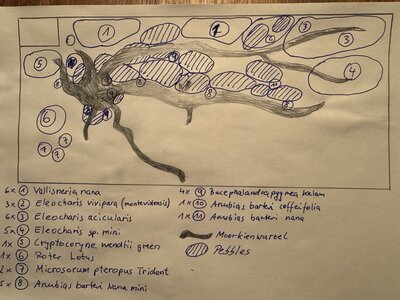 1
2
3
5
4
6
7
7
7
6x ① Vallisneria nana
3x ② Eleocharis vivipara (montevidensis)
6x ③ Eleocharis acicularis
5x ④ Eleocharis sp. mini
1x ⑤ Cryptocoryne wendtii green
1x ⑥ Roter Lotus
2x ⑦ Microsorum pteropus Trident
5x ⑧ Anubias barteri Nana mini
4x ⑨ Bucephalandra pygmea
1x ⑩ Anubias barteri coffeifolia
1x ⑪ Anubias barteri nana
Moorkienwurzel
Pebbles